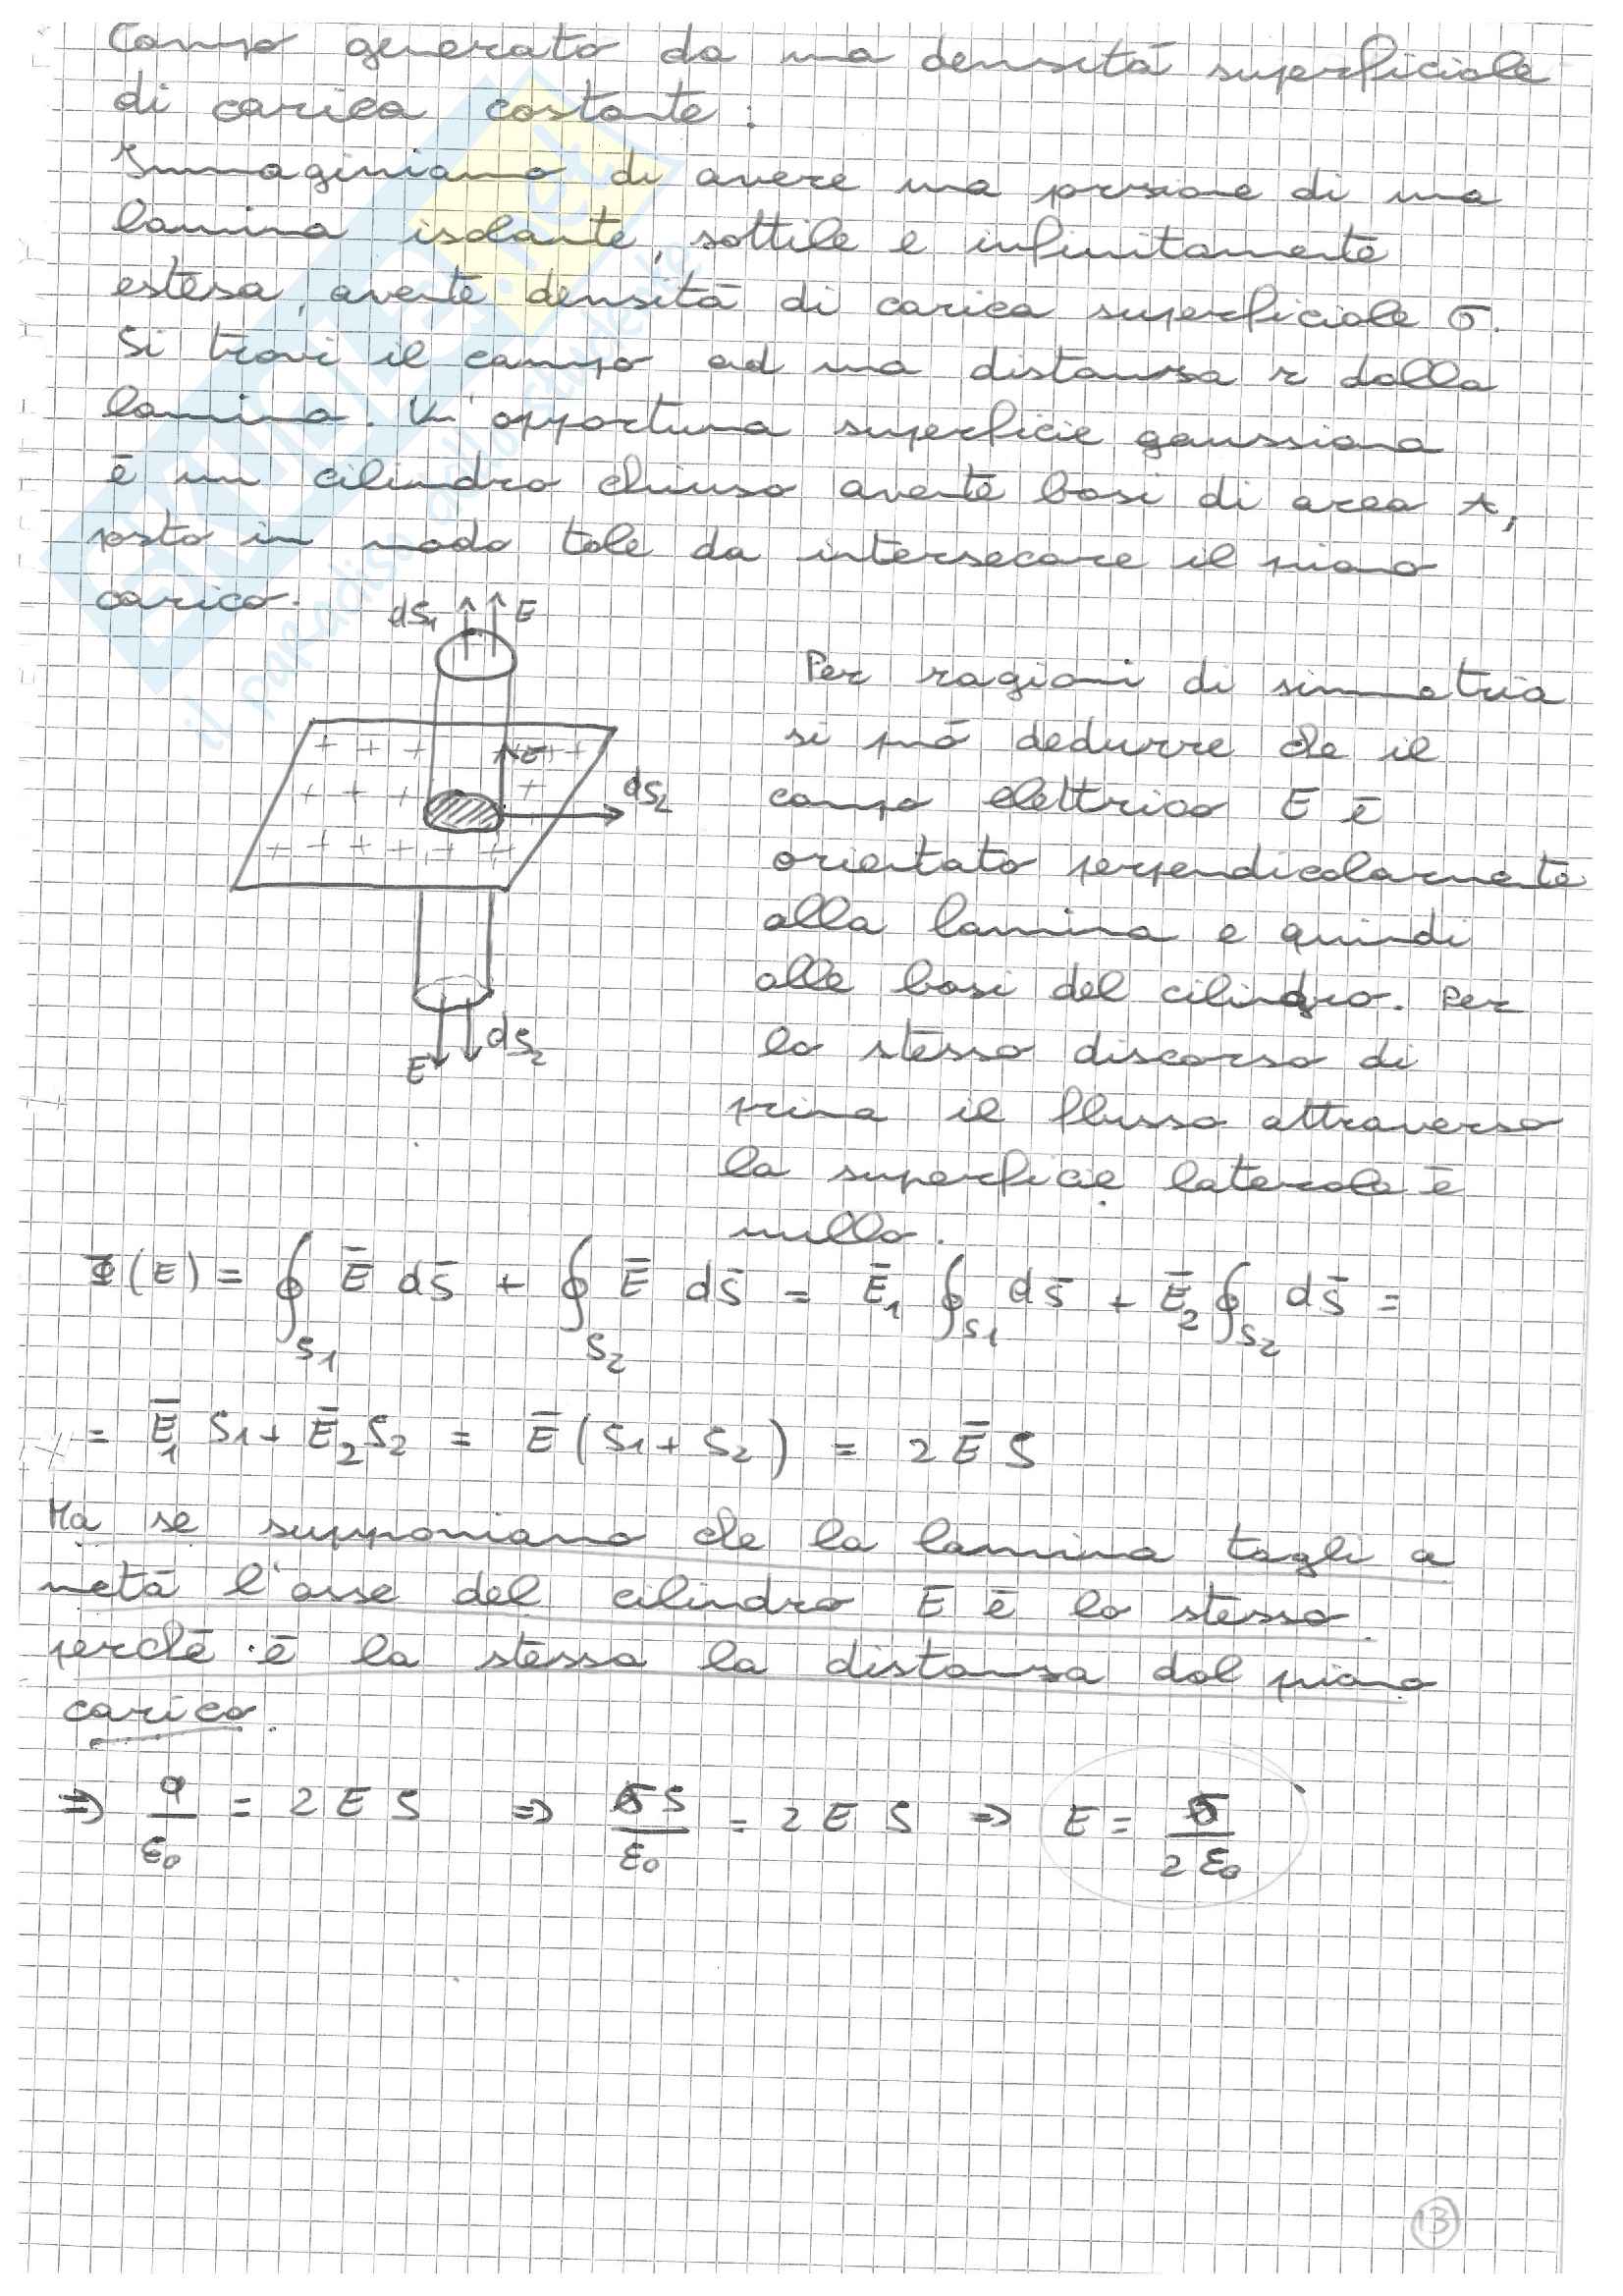 Campo generato da una densità superficiale
di carica costante:
Immaginiamo di avere una porzione di una
lamina isolante, sottile e infinitamente
estesa, avente densità di carica superficiale σ.
Si trovi il campo ad una distanza r dalla
lamina. Un'opportuna superficie gaussiana
è un cilindro chiuso avente basi di area A,
posto in modo tale da intersecare il piano
carico.
dS1 E
+ + + E + +
+ + + +
dS2
+ + + + + + +
E dS2
Per ragioni di simmetria
si può dedurre che il
campo elettrico E è
orientato perpendicolarmente
alla lamina e quindi
alle basi del cilindro. Per
lo stesso discorso di
prima il flusso attraverso
la superficie laterale è
nullo.
Φ(E) = ∮S1 Ē dS̄ + ∮S2 Ē dS̄ = Ē1 ∮S1 dS̄ + Ē2 ∮S2 dS̄ =
= Ē1 S1 + Ē2 S2 = Ē (S1 + S2) = 2 Ē S
Ma se supponiamo che la lamina tagli a
metà l'asse del cilindro E è lo stesso
perchè è la stessa la distanza dal piano
carico.
⇒ q/ε0 = 2 E S ⇒ σS/ε0 = 2 E S ⇒ E = σ/2ε0
13
il paradiso dello studente